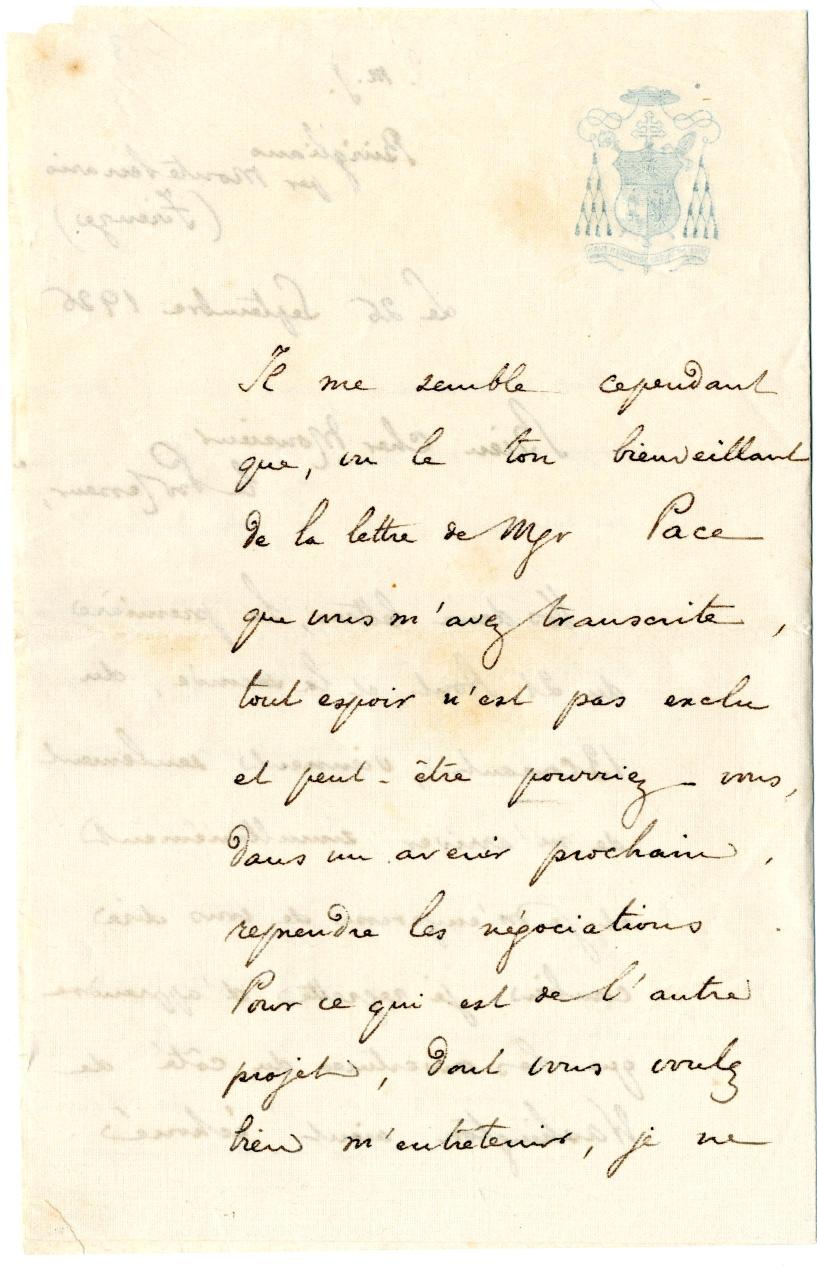 Il me semble cependant
que, vu le ton bienveillant
de la lettre de Mgr Pace
que vous m'avez transcrite,
tout espoir n'est pas exclu
et peut-être pourriez-vous,
dans un avenir prochain,
reprendre les négociations
Pour ce qui est de l'autre
projet, dont vous voulez
bien m'entretenir, je ne